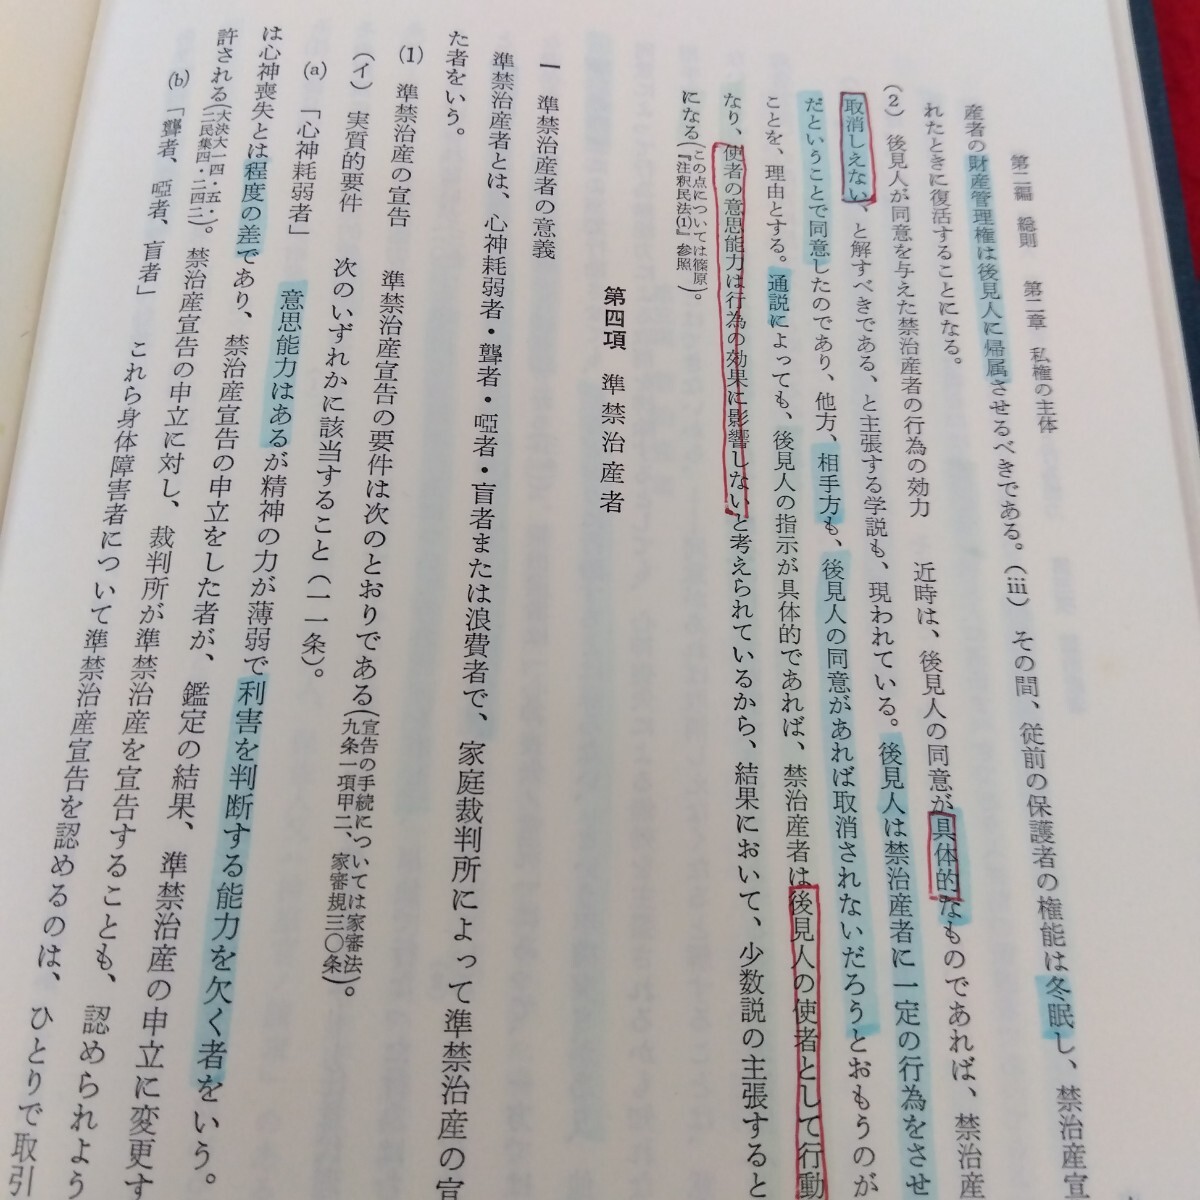 第二編 総則 第二章 私権の主体
産者の財産管理権は後見人に帰属させるべきである。(iii) その間、従前の保護者の権能は冬眠し、禁治産宣
れたときに復活することになる。
(2) 後見人が同意を与えた禁治産者の行為の効力 近時は、後見人の同意が具体的なものであれば、禁治産
取消しえない、と解すべきである、と主張する学説も、現われている。後見人は禁治産者に一定の行為をさせ
だということで同意したのであり、他方、相手方も、後見人の同意があれば取消されないだろうとおもうのが
ことを、理由とする。通説によっても、後見人の指示が具体的であれば、禁治産者は後見人の使者として行動
なり、使者の意思能力は行為の効果に影響しないと考えられているから、結果において、少数説の主張すると
になる(この点については篠原『注釈民法(1)』参照)。
第四項 準禁治産者
一 準禁治産者の意義
準禁治産者とは、心神耗弱者・聾者・啞者・盲者または浪費者で、家庭裁判所によって準禁治産の宣
た者をいう。
(1) 準禁治産の宣告 準禁治産宣告の要件は次のとおりである(宣告の手続については家審法九条一項甲二、家審規三〇条)。
(イ) 実質的要件 次のいずれかに該当すること(一一条)。
(a) 「心神耗弱者」 意思能力はあるが精神の力が薄弱で利害を判断する能力を欠く者をいう。
は心神喪失とは程度の差であり、禁治産宣告の申立をした者が、鑑定の結果、準禁治産の申立に変更す
許される(大決大一四・五・二民集四・二四二)。禁治産宣告の申立に対し、裁判所が準禁治産を宣告することも、認められよう
(b) 「聾者、啞者、盲者」 これら身体障害者について準禁治産宣告を認めるのは、ひとりで取引